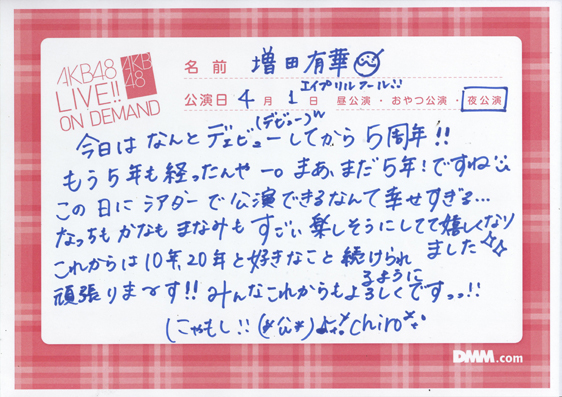 AKB48
LIVE!!
ON DEMAND
AKB
48
名前 増田有華
エイプリルフール!!
公演日 4月1日 昼公演・おやつ公演・夜公演
(デビュー)w
今日はなんとデェビューしてから5周年!!
もう5年も経ったんやー。まあ、まだ5年!ですね
この日にシアターで公演できるなんて幸せすぎる…
なっちもかなもまなみもすごい楽しそうにしてて嬉しくなり
ました
これからは10年、20年と好きなこと続けられ
るように
頑張りまーす!!みんなこれからもよろしくですっっ!!
にゃもし!! chiro
DMM.com